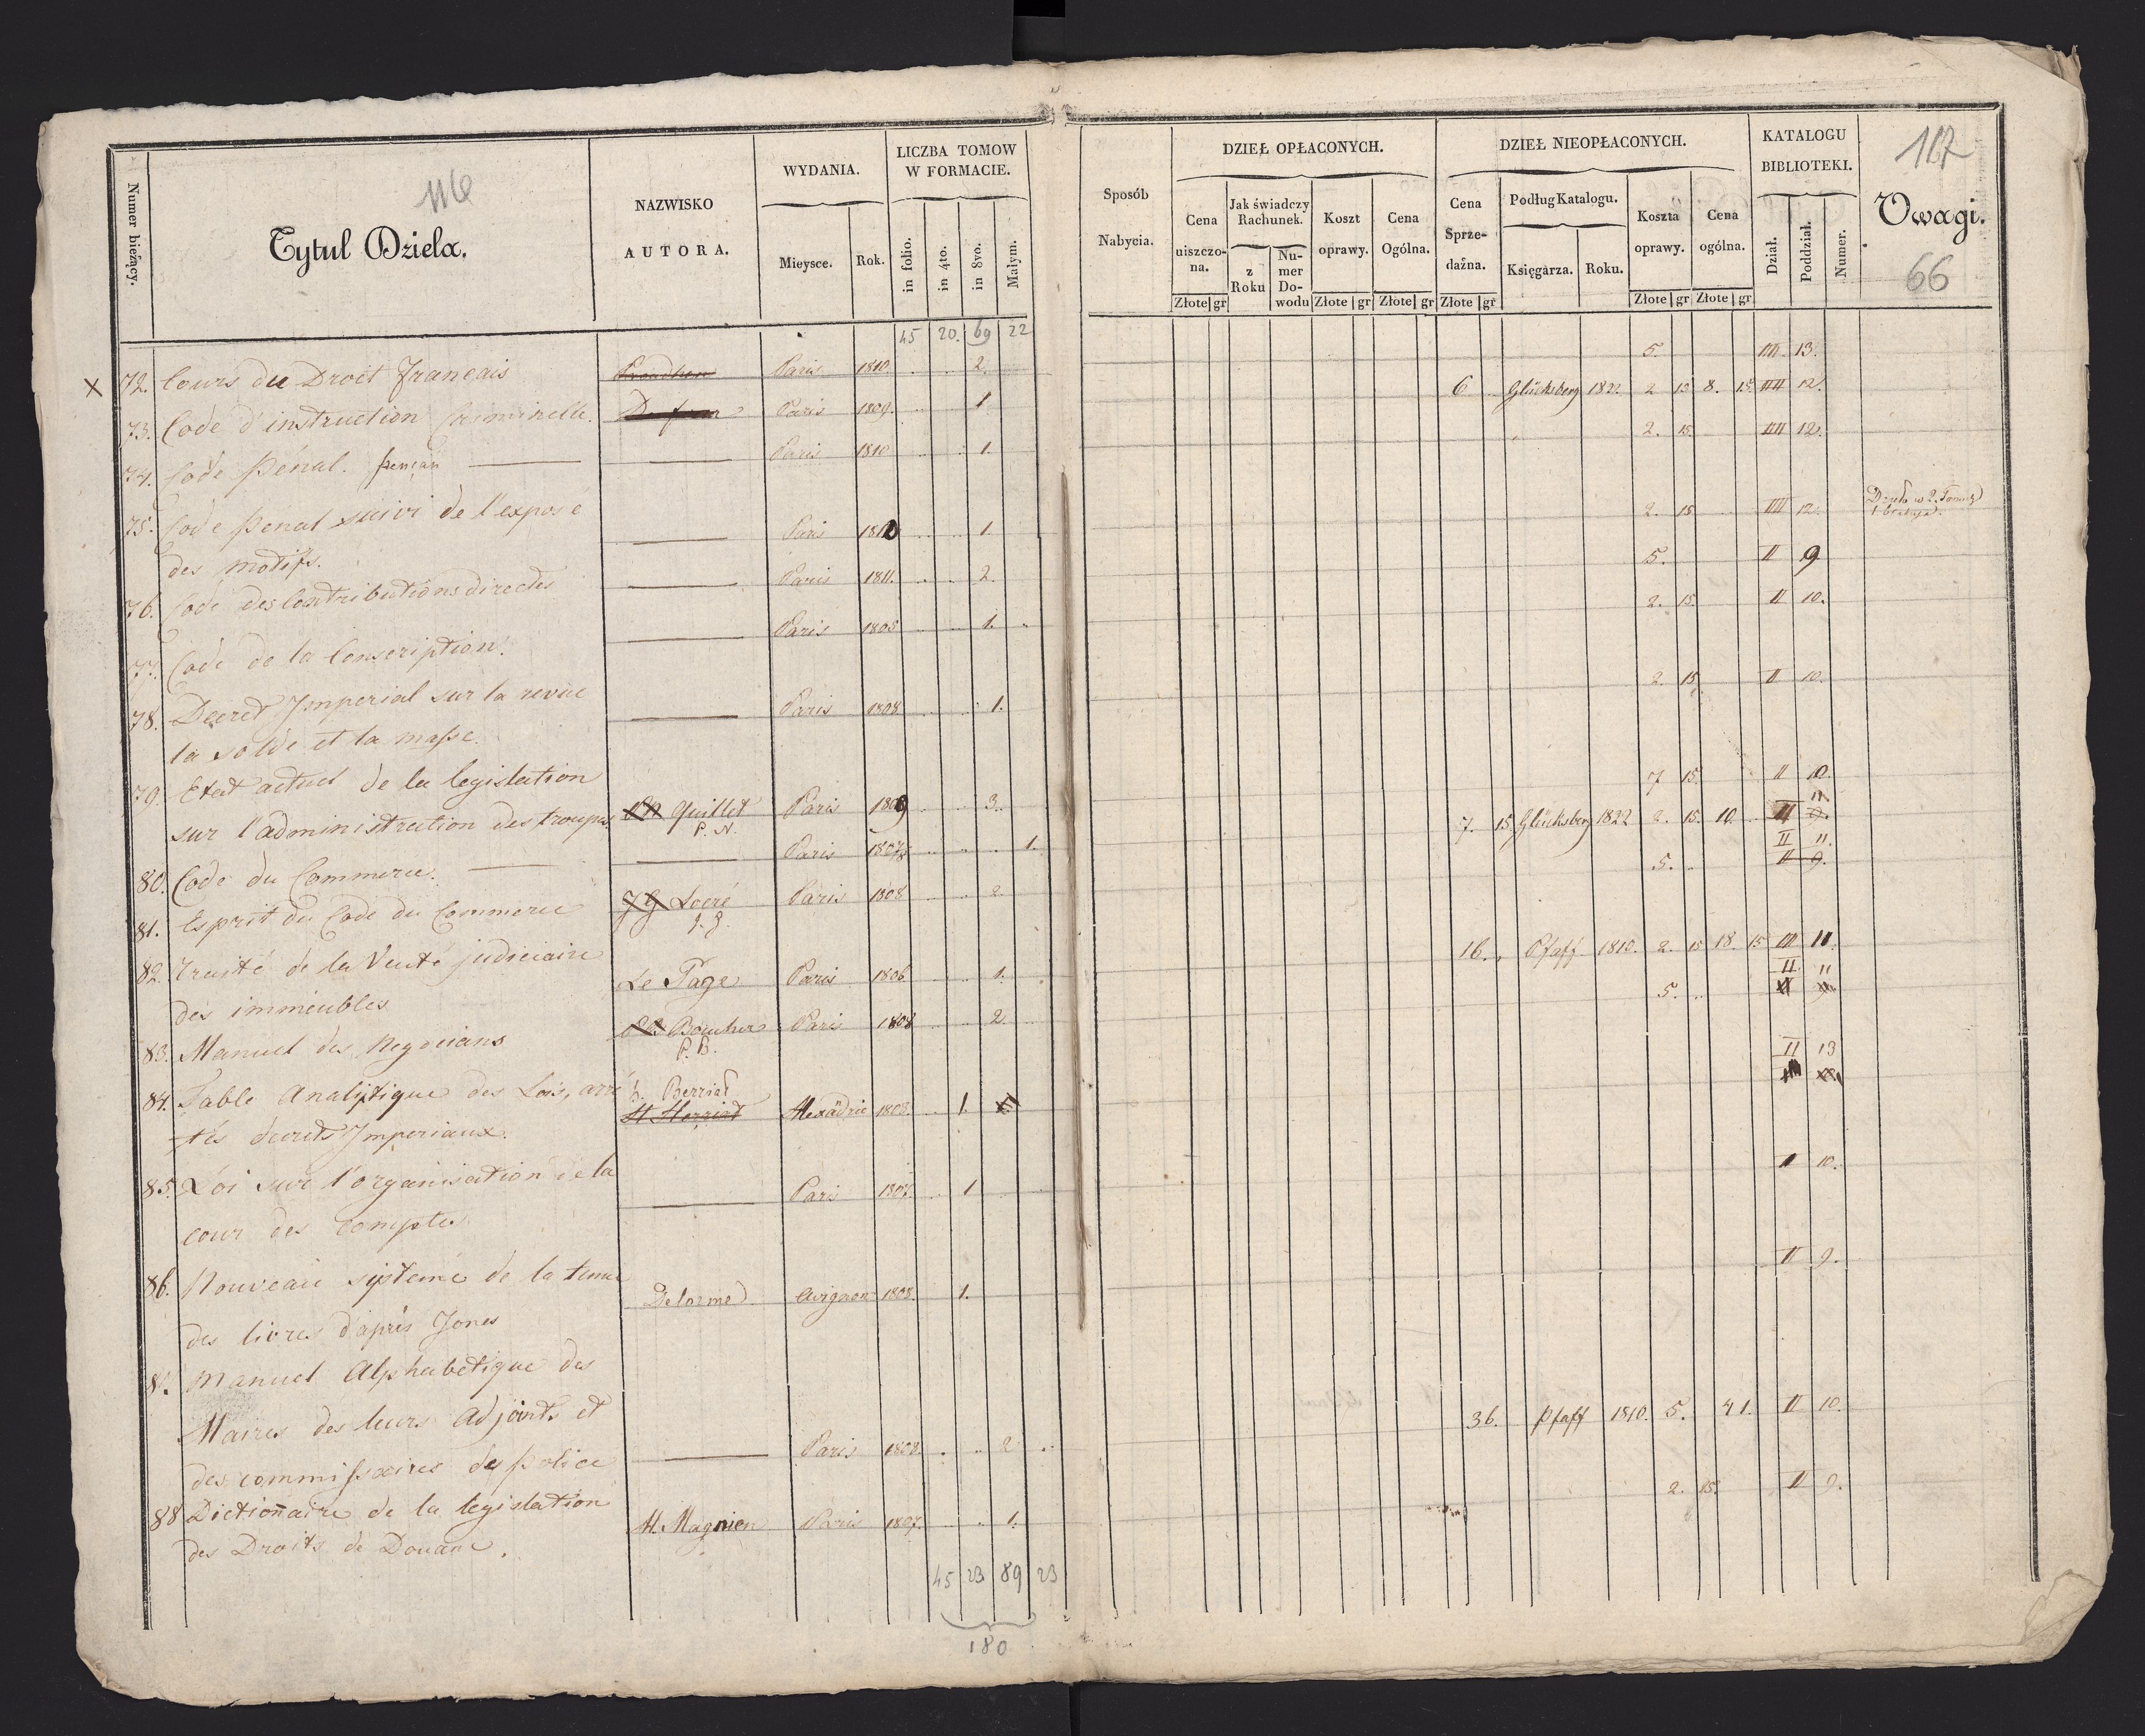 116
Numer bieżący.
Tytul Dzieła.
NAZWISKO
AUTORA.
WYDANIA.
Mieysce. Rok.
LICZBA TOMOW
W FORMACIE.
in folio. in 4to. in 8vo. Małym.
45 20. 69 22
X 72. Cours du Droit Français Paris 1810 2.
73. Code d'instruction Criminelle. Paris 1809. 1
74. Code Pénal. Paris 1810 1.
75. Code penal suivi de l'expose
des motifs. Paris 1810 1.
76. Code des Contributions directes Paris 1811. 2.
77. Code de la Conscription. Paris 1808 1.
78. Decret Imperial sur la revue Paris 1808 1.
la solde et la masse.
79. Etat actuel de la legislation
sur l'administration des troupes Quillet Paris 1809 3.
P. N.
80. Code du Commerce. Paris 1807 1.
81. Esprit du Code du Commerce Locré Paris 1808 2.
J. G.
82. Traité de la Vente judiciaire
des immeubles Le Page Paris 1806 1.
83. Manuel des Negocians Boucher Paris 1808 2
P. B.
84. Table Analytique des Lois, arrê
tés decrets Imperiaux. Berriat Alexādrie 1808. 1.
85. Loi sur l'organisation de la
cour des comptes Paris 1807. 1
86. Nouveau système de la tenue
des livres d'après Jones Delorme Avignon 1808. 1.
8. Manuel Alphabetique des
Maires des leurs Adjoints et
des commissaires de police Paris 1808. 2
88 Dictionnaire de la legislation
des Droits de Douane. M. Magnien Paris 1807. 1.
45 23 89 23
180
Sposób
Nabycia.
DZIEŁ OPŁACONYCH.
Cena
uiszczo-
na.
Jak świadczy
Rachunek.
z
Roku
Nu-
mer
Do-
wodu
Koszt
oprawy.
Cena
Ogólna.
Złote gr Złote gr Złote gr
DZIEŁ NIEOPŁACONYCH.
Cena
Sprze-
dażna.
Podług Katalogu.
Księgarza. Roku.
Koszta
oprawy.
Cena
ogólna.
Złote gr Złote gr Złote gr
KATALOGU
BIBLIOTEKI.
Dział. Poddział. Numer.
167
Uwagi.
66
5. III. 13.
6 Glücksberg 1822 2 15 8. 15. III 12.
2. 15. III 12.
2. 15 III 12.
5. II 9
2. 15. II 10.
2. 15. II 10.
7 15. II 10.
7. 15. Glücksberg 1822 2. 15. 10. II 11
5. II 11.
16. Pfaff 1810. 2. 15 18. 15 III 11.
5. II 11
II 13
II 10.
II 9.
36. Pfaff 1810. 5. 41. II 10.
2. 15. II 9.